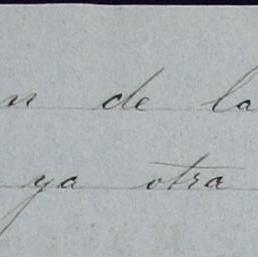 n de la
ya otra